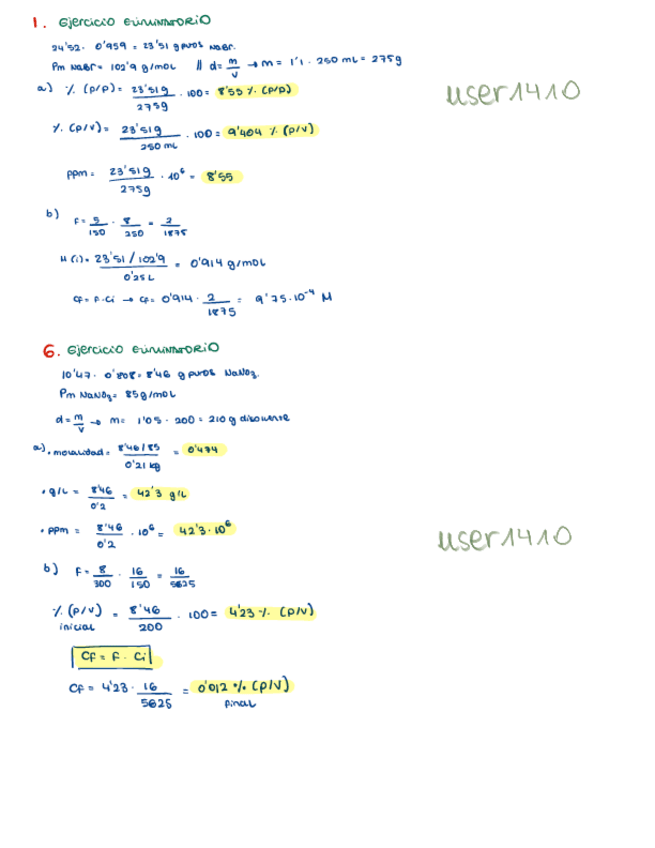 1. Ejercicio eliminatorio
24'52 · 0'959 = 23'51 g puros NaBr.
Pm NaBr = 102'9 g/mol // d = m/V → m = 1'1 · 250 mL = 275g
a) % (p/p) = 23'51g/275g · 100 = 8'55 % (p/p)
user1410
% (p/v) = 23'51g/250 mL · 100 = 9'404 % (p/v)
ppm = 23'51g/275g · 10⁶ = 8'55
b) F = 5/150 · 8/250 = 2/1875
M(i) = 23'51/102'9/0'25L = 0'914 g/mol
CF = F·Ci → CF = 0'914 · 2/1875 = 9'75·10⁻⁴ M
6. Ejercicio eliminatorio
10'47 · 0'808 = 8'46 g puros NaNO₃.
Pm NaNO₃ = 85g/mol
d = m/V → m = 1'05 · 200 = 210 g disolvente
a) · molalidad = 8'46/85/0'21 kg = 0'474
· g/L = 8'46/0'2 = 42'3 g/L
· ppm = 8'46/0'2 · 10⁶ = 42'3·10⁶
user1410
b) F = 8/300 · 16/150 = 16/5625
% (p/v) = 8'46/200 · 100 = 4'23 % (p/v)
inicial
CF = F · Ci
CF = 4'23 · 16/5625 = 0'012 % (p/v)
final